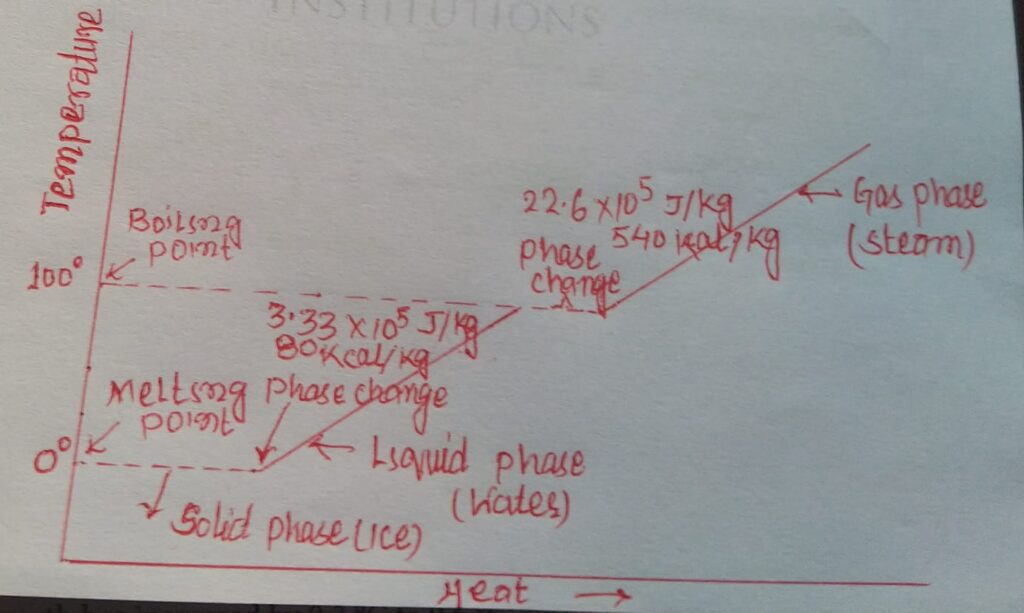 INSTITUTIONS
Temperature
22.6 × 10⁵ J/kg
540 kcal/kg
Phase
change
Gas phase
(steam)
Boiling
point
100°
3.33 × 10⁵ J/kg
80 kcal/kg
Melting
point
Phase change
0°
Liquid phase
(Water)
Solid phase (ice)
Heat